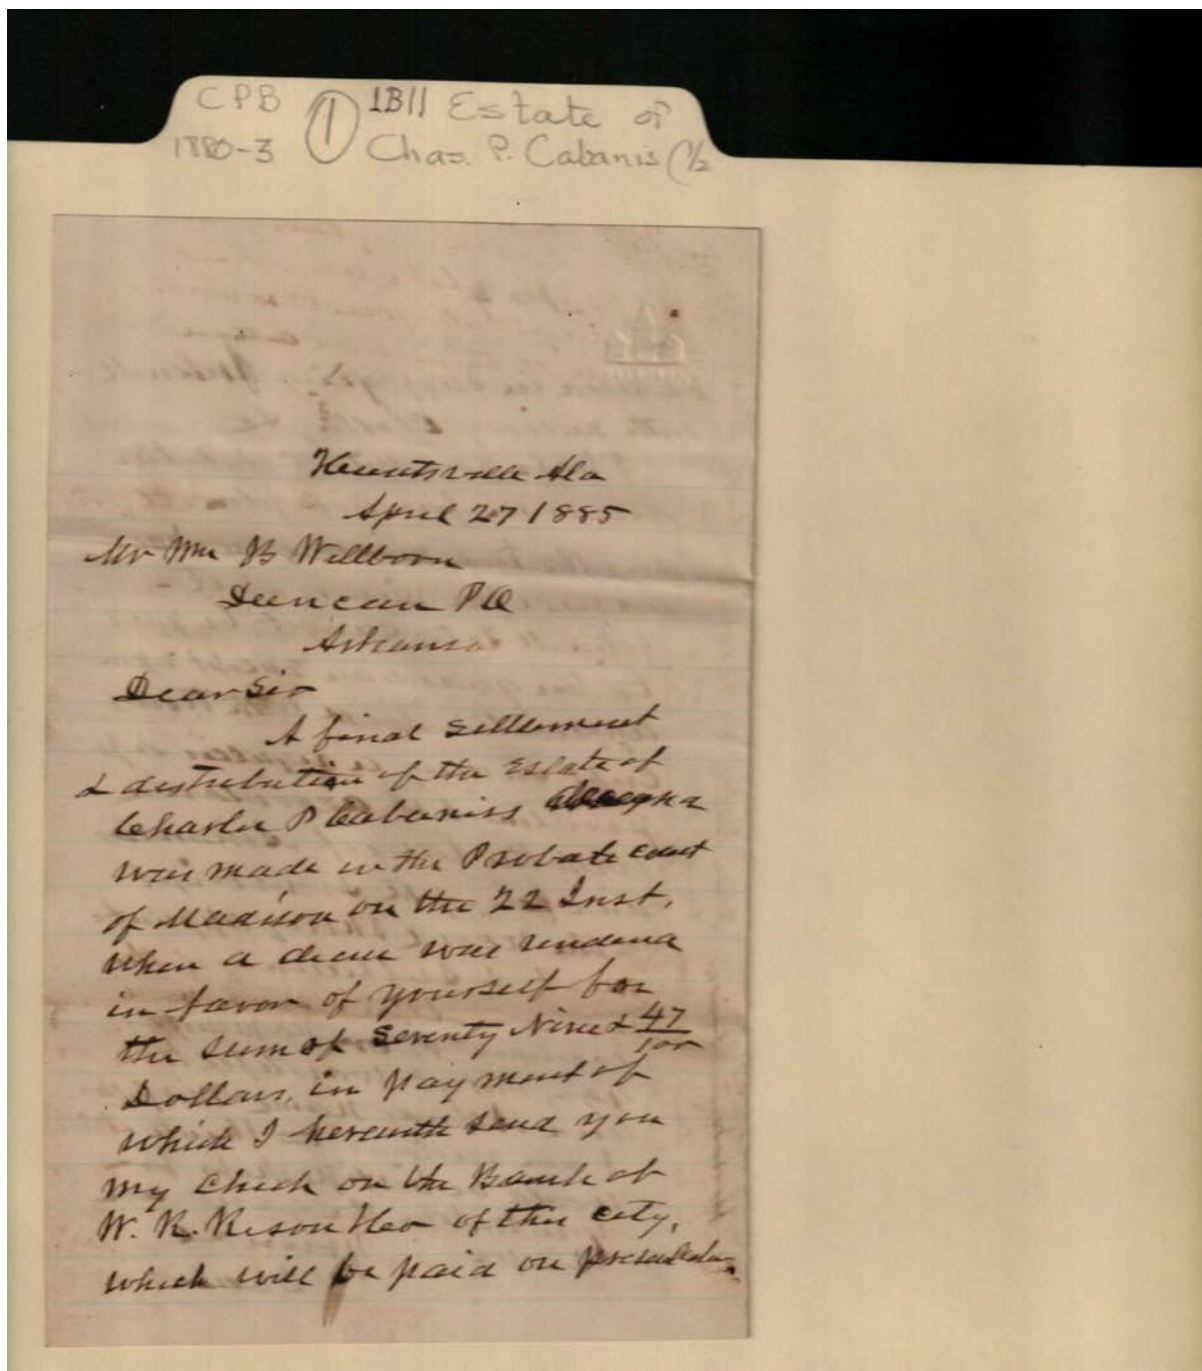 CPB ① 1B11 Estate of
1880-3 Chas. P. Cabanis (1/2
Huntsville Ala
April 27 1885
Mr Wm B Wellborn
Duncan P O
Arkansas
Dear Sir
A final settlement
& distribution of the Estate of
Charles P Cabaniss
was made in the Probate court
of Madison on the 22 Inst,
when a decree was rendered
in favor of yourself for
the sum of Seventy Nine & 47/100
Dollars, in payment of
which I herewith send you
my check on the Bank of
W. R. Rison &co of this city,
which will be paid on presentation.